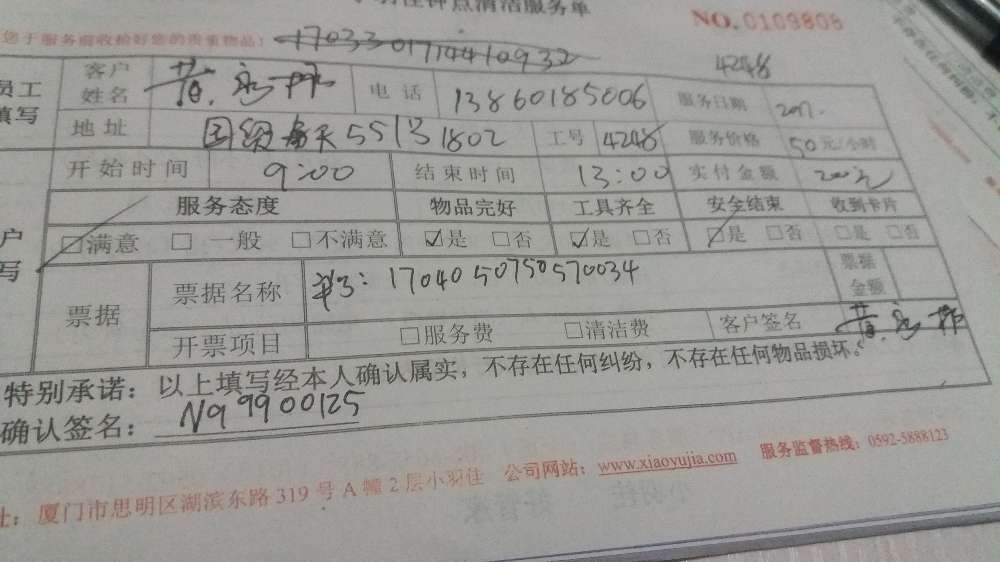 钟点清洁服务单
NO.0109808
您于服务前收拾好您的贵重物品)
1703301714410932
4248
员工
填写
客户
姓名
电话 13860185006 服务日期 2017.
地址 5513 1802 工号 4248 服务价格 50元/小时
开始时间 9:00 结束时间 13:00 实付金额 200元
服务态度 物品完好 工具齐全 安全结束 收到卡片
户
写
□满意 □ 一般 □不满意 ☑是 □否 ☑是 □否 ☑是 □否 □是 □否
票据 票据名称 1704050750570034 票据
金额
开票项目 □服务费 □清洁费 客户签名
特别承诺：以上填写经本人确认属实，不存在任何纠纷，不存在任何物品损坏。
确认签名： N99900125
址：厦门市思明区湖滨东路319号A幢2层小羽佳 公司网站：www.xiaoyujia.com 服务监督热线：0592-5888123